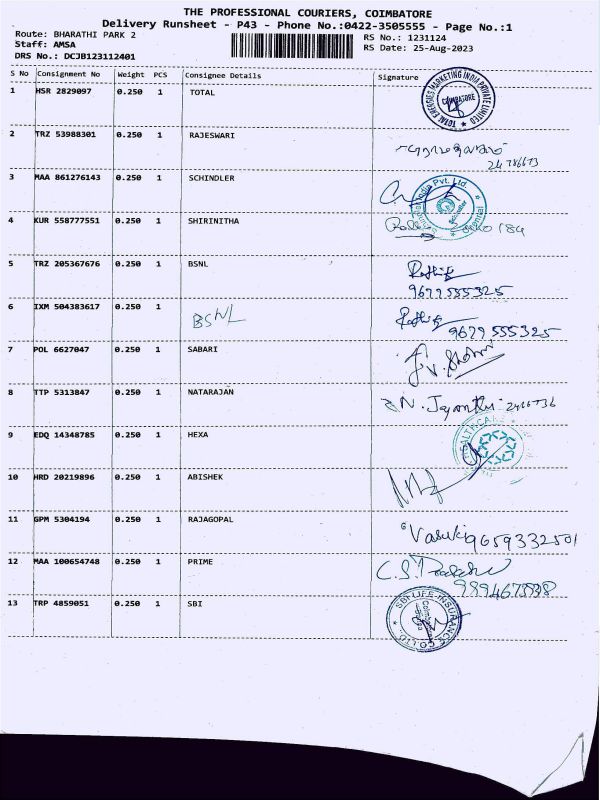 THE PROFESSIONAL COURIERS, COIMBATORE
Delivery Runsheet - P43 - Phone No.:0422-3505555 - Page No.:1
Route: BHARATHI PARK 2 RS No.: 1231124
Staff: AMSA RS Date: 25-Aug-2023
DRS No.: DCJB123112401
S No Consignment No Weight PCS Consignee Details Signature
1 HSR 2829097 0.250 1 TOTAL
TOTAL ENERGIES MARKETING INDIA PRIVATE LIMITED COIMBATORE
2 TRZ 53988301 0.250 1 RAJESWARI
3 MAA 861276143 0.250 1 SCHINDLER
Schindler India Pvt. Ltd. Chennai
4 KUR 558777551 0.250 1 SHIRINITHA
5 TRZ 205367676 0.250 1 BSNL
9677555325
6 IXM 504383617 0.250 1 BSNL
9677555325
7 POL 6627047 0.250 1 SABARI
8 TTP 5313847 0.250 1 NATARAJAN N. Jayanthi
9 EDQ 14348785 0.250 1 HEXA
HEALTHCARE
10 HRD 20219896 0.250 1 ABISHEK
11 GPM 5304194 0.250 1 RAJAGOPAL Vasuki 9659332501
12 MAA 100654748 0.250 1 PRIME
13 TRP 4859051 0.250 1 SBI
SBI LIFE INSURANCE CO LTD